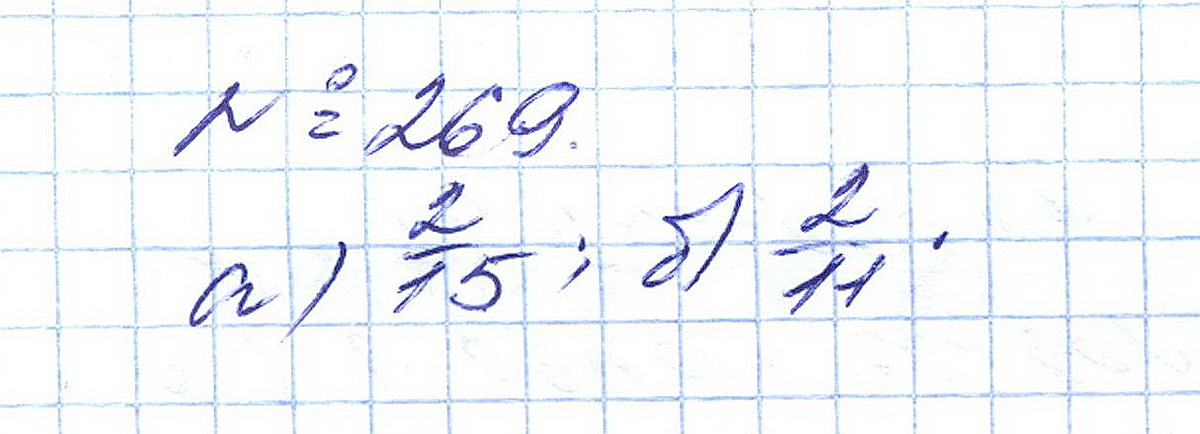 № 269.
а) 2/15; б) 2/11.